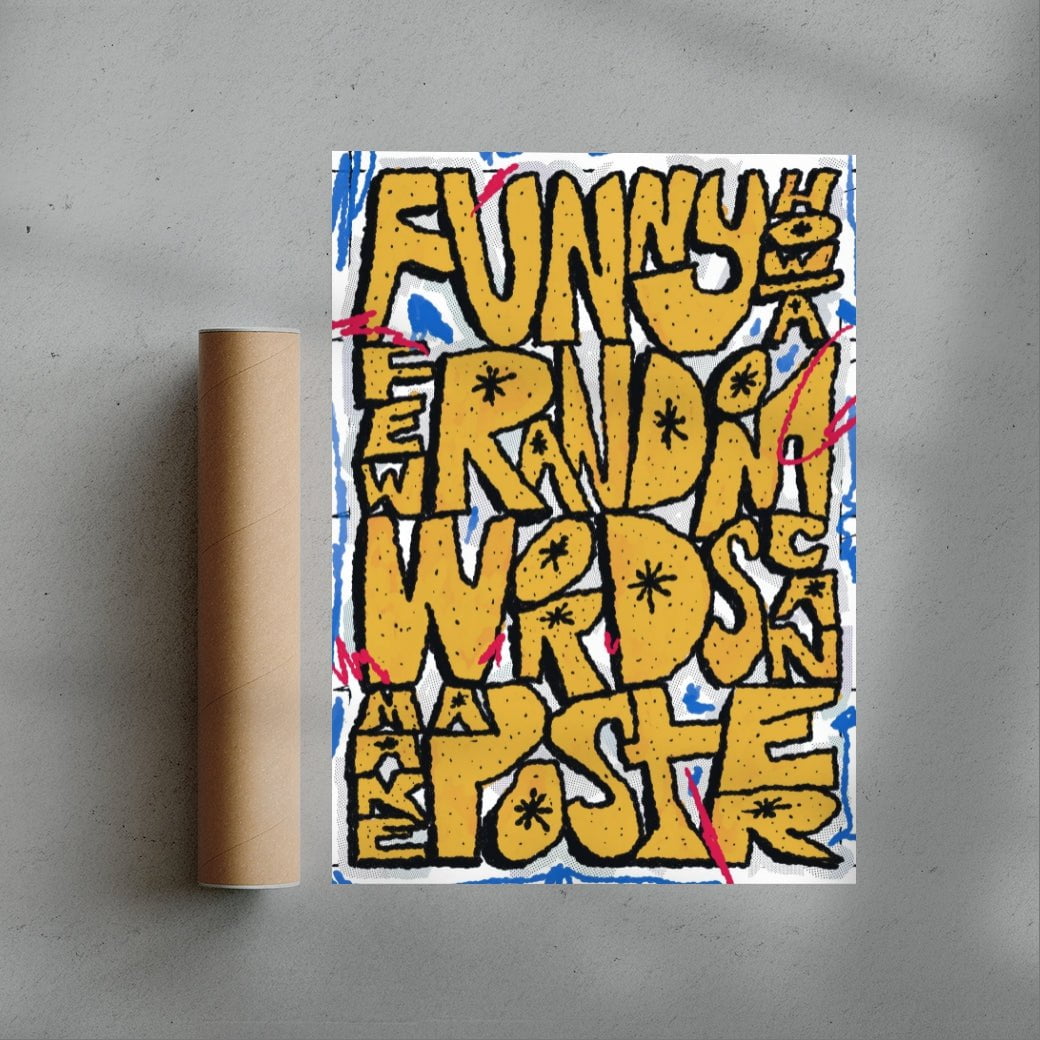 FUNNY HOW A
FEW RANDOM
WORDS CAN
MAKE A POSTER